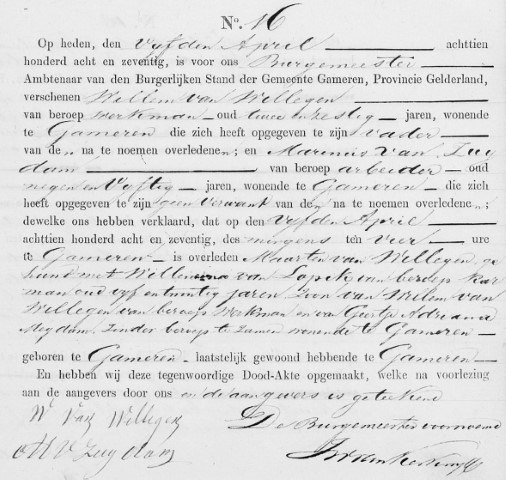 No. 16
Op heden, den vyfden April achttien
honderd acht en zeventig, is voor ons Burgemeester
Ambtenaar van den Burgerlijken Stand der Gemeente Gameren, Provincie Gelderland,
verschenen Willem van Willegen
van beroep werkman oud twee en zestig jaren, wonende
te Gameren die zich heeft opgegeven te zijn vader
van de „ na te noemen overledene „; en Marinus van Zuy
dam van beroep arbeider oud
negen en vyftig jaren, wonende te Gameren die zich
heeft opgegeven te zijn geen verwant van de „ na te noemen overledene „;
dewelke ons hebben verklaard, dat op den vyfden April
achttien honderd acht en zeventig, des morgens ten vier ure
te Gameren is overleden Maarten van Willegen, ge
huwd met Willemina van van beroep
man oud vyf en twintig jaren Zoon van Willem van
Willegen van beroep werkman en van Geertje Adriana
zonder beroep te zamen wonende te Gameren
geboren te Gameren laatstelijk gewoond hebbende te Gameren
En hebben wij deze tegenwoordige Dood-Akte opgemaakt, welke na voorlezing
aan de aangevers door ons en de aangevers is geteekend
W Van Willegen De Burgemeester voornoemd
M V Zuydam